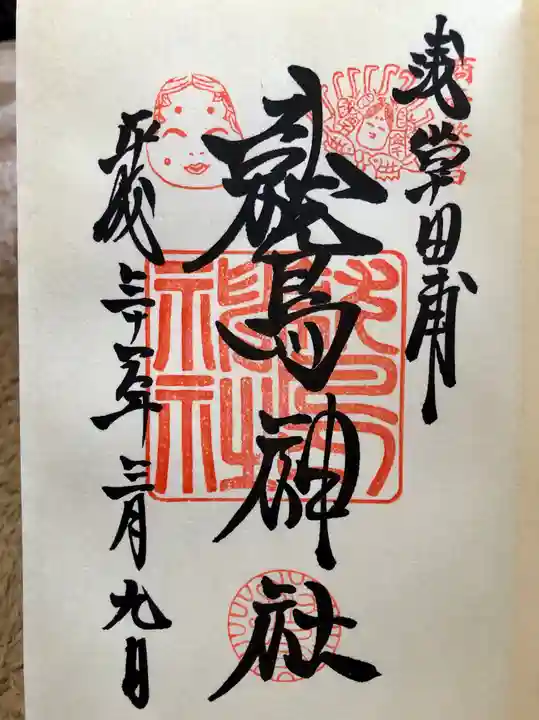 浅草田甫
鷲神社
平成三十一年三月九日